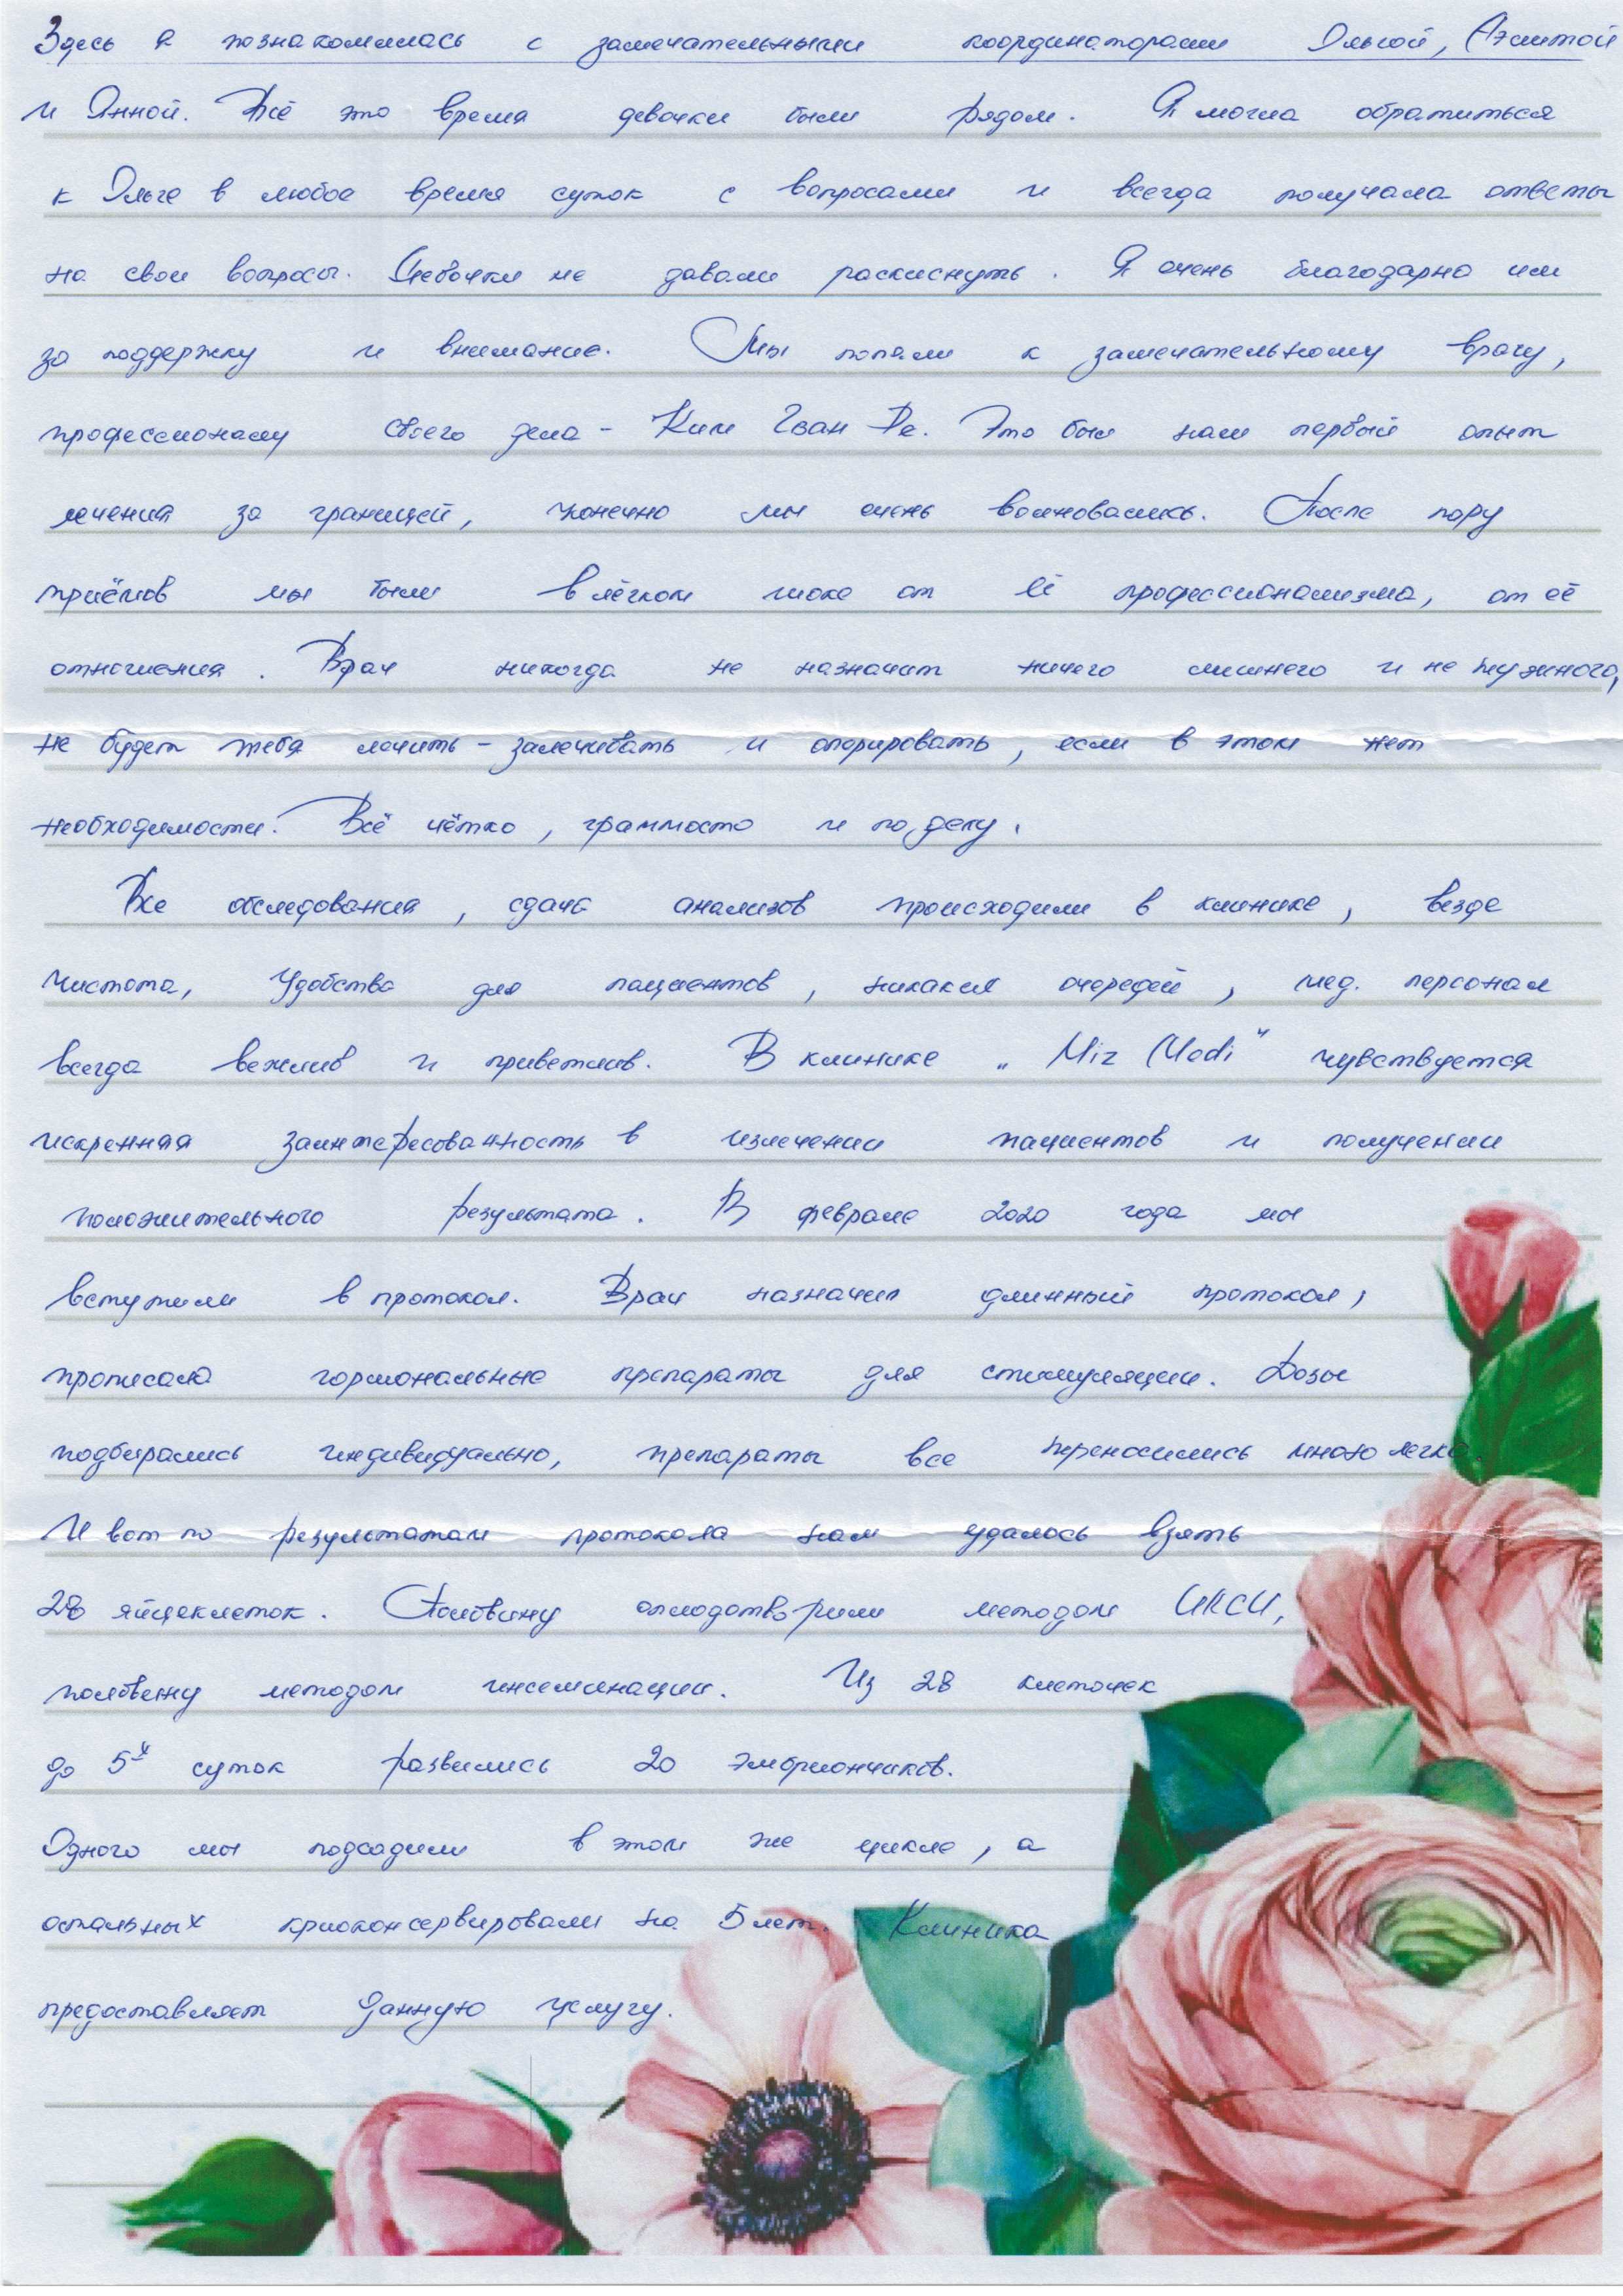 Здесь я познакомилась с замечательными координаторами Ольгой, Аэлитой
и Янной. Всё это время девочки были рядом. Я могла обратиться
к Ольге в любое время суток с вопросами и всегда получала ответы
на свои вопросы. Девочки не давали раскиснуть. Я очень благодарна им
за поддержку и внимание. Мы попали к замечательному врачу,
профессионалу своего дела - Ким Гван Ре. Это был наш первый опыт
лечения за границей, конечно мы очень волновались. После пару
приёмов мы были в лёгком шоке от её профессионализма, от её
отношения. Врач никогда не назначит ничего лишнего и не нужного,
не будет тебя лечить - залечивать и оперировать, если в этом нет
необходимости. Всё чётко, грамотно и по делу.
Все обследования, сдача анализов происходили в клинике, везде
чистота, удобства для пациентов, никаких очередей, мед. персонал
всегда вежлив и приветлив. В клинике „Miz Medi" чувствуется
искренняя заинтересованность в излечении пациентов и получении
положительного результата. В феврале 2020 года мы
вступили в протокол. Врач назначил длинный протокол,
прописала гормональные препараты для стимуляции. Дозы
подбирались индивидуально, препараты все переносились мною легко.
И вот по результатам протокола нам удалось взять
28 яйцеклеток. Половину оплодотворили методом ИКСИ,
половину методом инсеминации. Из 28 клеточек
до 5х суток развились 20 эмбриончиков.
Одного мы подсадили в этом же цикле, а
остальных криоконсервировали на 5 лет. Клиника
предоставляет данную услугу.